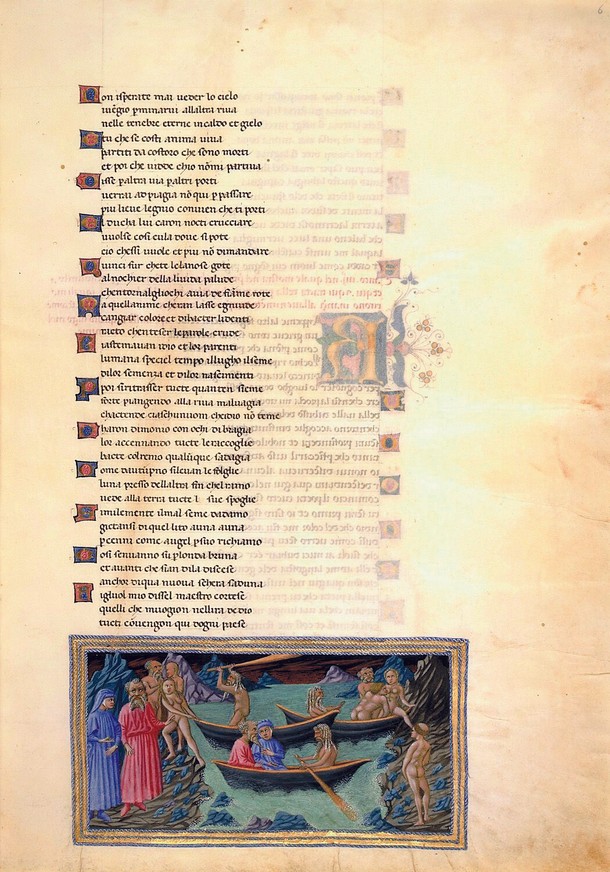 6
Non isperate mai ueder lo cielo
iuẽgio pmenarui allaltra riua
nelle tenebre eterne incaldo et gielo
Et tu che se costi anima uiua
partiti da costoro che sono morti
et poi che uidde chio nõmi partiua
Disse paltra uia paltri porti
uerrai ad piagia nõ qui ppassare
piu lieue legnio conuien che ti porti
El ducha lui caron nocti crucciare
uuolsi cosi cula doue si pote
cio chessi uuole et piu nõ dimandare
Quinci fur chete le lanose gote
al nochier della liuida palude
chentorno algliochi auia de fiãme rote
Ma quellanime cheran lasse egniude
cangiar colore et dibacter lidenti
ratto chenteser leparole crude
Biastemauan idio et lor parenti
lumana spetie l tempo illugho ilseme
dilor semenza et dilor nascimenti
Poi siritrasser tucte quante insieme
forte piangendo alla riua maluagia
chactende ciaschunuom chedio nõ teme
Charon dimonio con ochi di bragia
lor accennando tucte le raccoglie
bacte col remo qualũque sadagia
Come dautũpno si leuan le foglie
luna presso dellaltra fin chel ramo
uede alla terra tucte l sue spoglie
Similemente il mal seme dadamo
gictansi di quel lito a una auna
p cenni come augel psuo richiamo
Cosi senuanno su plonda bruna
et auanti che sian di la discese
anchor di qua nuoua schera saduna
Figluol mio dissel maestro cortese
quelli che muoion nellira de dio
tucti cõuengon qui dogni paese